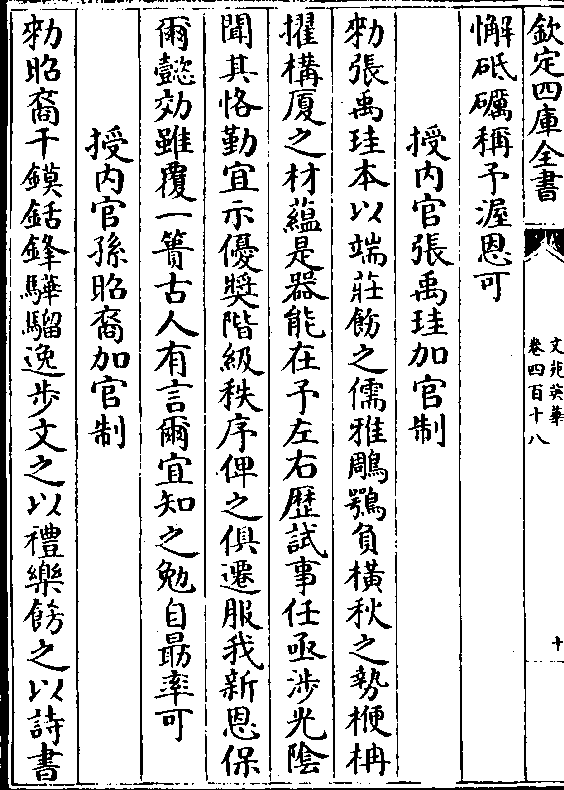 欽定四庫全書
文苑英華
卷四百十八
十
懈砥礪稱予渥恩可
授内官張禹珪加官制
勑張禹珪本以端莊飭之儒雅鵰鶚負橫秋之勢楩枏
擢構厦之材蘊是器能在予左右歴試事任亟涉光陰
聞其恪勤宜示優奬階級秩序俾之俱遷服我新恩保
爾懿効雖覆一簣古人有言爾宜知之勉自勗率可
授内官孫昭裔加官制
勑昭裔干鏌銛鋒驊騮逸步文之以禮樂飭之以詩書